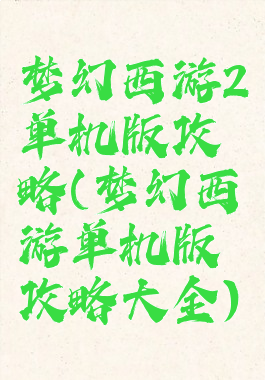 梦幻西游2
单机版攻
略(梦幻西
游单机版
攻略大全)